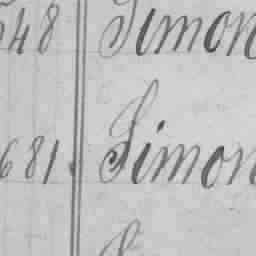 548 Simon
681. Simon